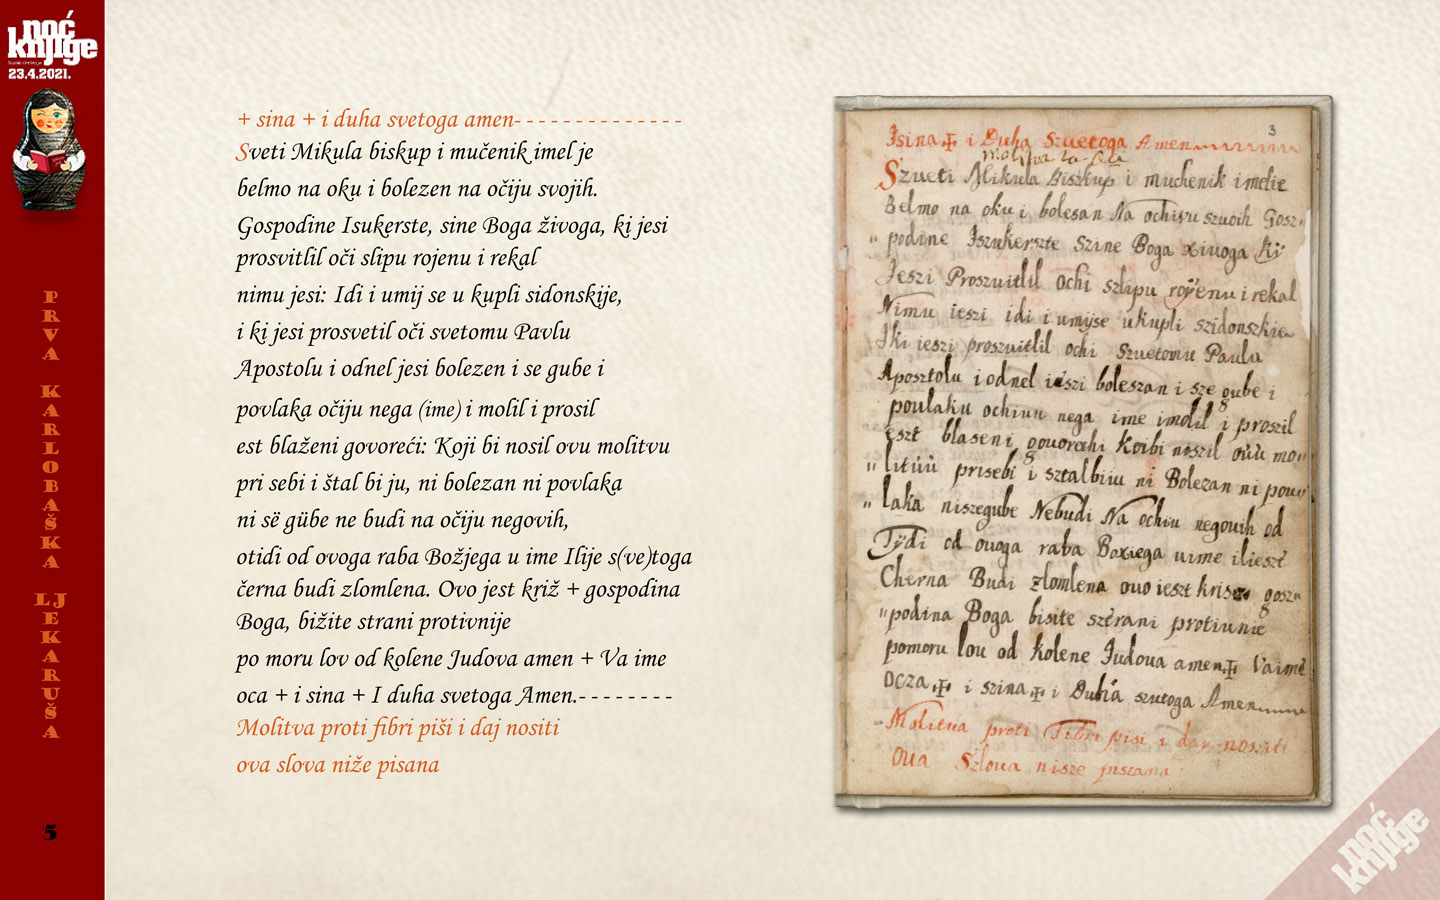 noć
knjige
23.4.2021.
PRVA KARLOBAŠKA LJEKARUŠA
5
+ sina + i duha svetoga amen- - - - - - - - - - - - - - -
Sveti Mikula biskup i mučenik imel je
belmo na oku i bolezen na očiju svojih.
Gospodine Isukerste, sine Boga živoga, ki jesi
prosvitlil oči slipu rojenu i rekal
nimu jesi: Idi i umij se u kupli sidonskije,
i ki jesi prosvetil oči svetomu Pavlu
Apostolu i odnel jesi bolezen i se gube i
povlaka očiju nega (ime) i molil i prosil
est blaženi govoreći: Koji bi nosil ovu molitvu
pri sebi i štal bi ju, ni bolezan ni povlaka
ni së gübe ne budi na očiju negovih,
otidi od ovoga raba Božjega u ime Ilije s(ve)toga
černa budi zlomlena. Ovo jest križ + gospodina
Boga, bižite strani protivnije
po moru lov od kolene Judova amen + Va ime
oca + i sina + I duha svetoga Amen.- - - - - - - -
Molitva proti fibri piši i daj nositi
ova slova niže pisana
3
Isina ✠ i Duha Szuetoga Amen
Molitva za
Szueti Mikula Biszkup i muchenik imelie
Belmo na oku i bolesan Na ochiyu szuoih Gosz"
"podine Iszukerszte Szine Boga xiuoga Ki
Ieszi Proszuitlil ochi szlipu royenu i rekal
Nimu ieszi idi i umijse ukupli szidonszkie
Iki ieszi proszuitlil ochi Szuetomu Paulu
Aposztolu i odnel ieszi boleszan i sze gube i
poulaku ochiuu nega ime imolil i proszil
eszt blaseni gouorechi Koibi noszil ouu mo"
"lituu prisebi i sztalbiu ni Bolezan ni pou"
"laka niszegube Nebudi Na ochiu negouih od
Tydi od ouoga raba Boxiega uime ilieszt
Cherna Budi zlomlena ouo ieszt kris gosz"
"podina Boga bisite sztrani protiunie
pomoru lou od kolene Iudoua amen ✠ Vaime
Ocza ✠ i szina ✠ i Duha szuetoga Amen
Molitua proti Fibri pisi i day nosziti
oua Szloua nisze piszana
noć
knjige